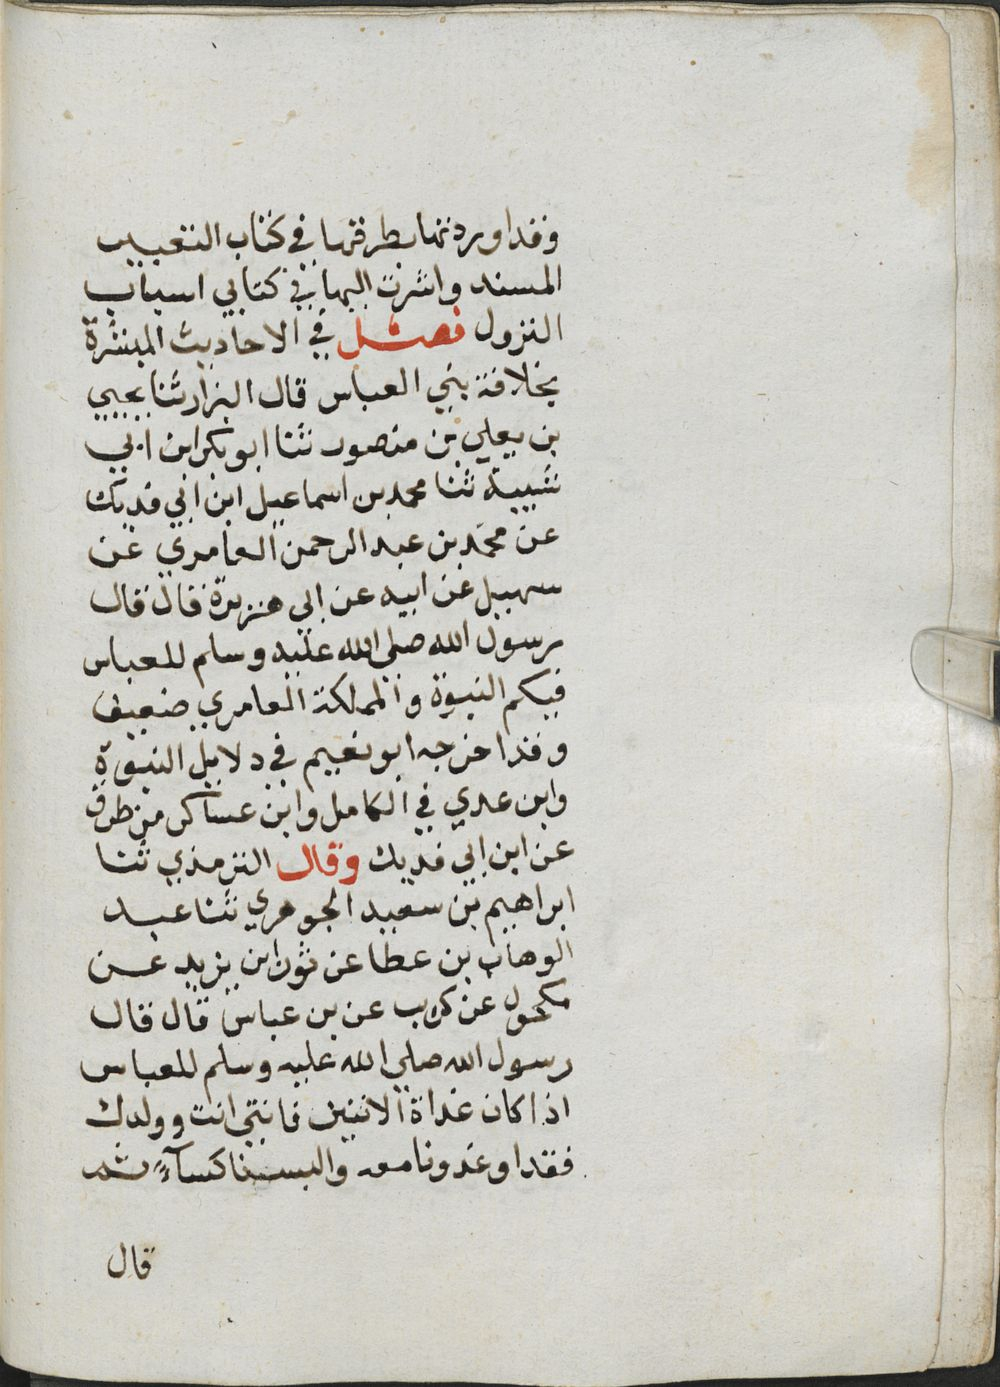 وقد اوردتها بطرقها في كتاب التفسير
المسند واشرت اليها في كتابي اسباب
النزول فصل في الاحاديث المبشرة
بخلافة بني العباس قال البزار ثنا يحيي
بن يعلي بن منصور ثنا ابو بكر ابن ابي
شيبة ثنا محمد بن اسماعيل ابن ابي فديك
عن محمد بن عبد الرحمن العامري عن
سهيل عن ابيه عن ابي هريرة قال قال
رسول الله صلي الله عليه وسلم للعباس
فيكم النبوة والمملكة العامري ضعيف
وقد اخرجه ابو نعيم في دلايل النبوة
وابن عدي في الكامل وابن عساكر من طرق
عن ابن ابي فديك وقال الترمذي ثنا
ابراهيم بن سعيد الجوهري ثنا عبد
الوهاب بن عطا عن ثور ابن يزيد عن
مكحول عن كريب عن بن عباس قال قال
رسول الله صلي الله عليه وسلم للعباس
اذا كان غداة الاثنين فاتني انت وولدك
فغدا وغدونا معه والبسنا كسآءً ثم
قال